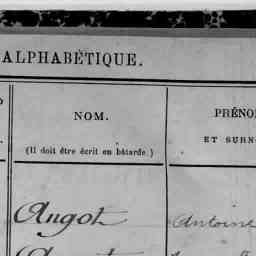 ALPHABÉTIQUE.
NOM.
(Il doit être écrit en bâtarde.)
PRÉNO
ET SURN
Angot
Antoine